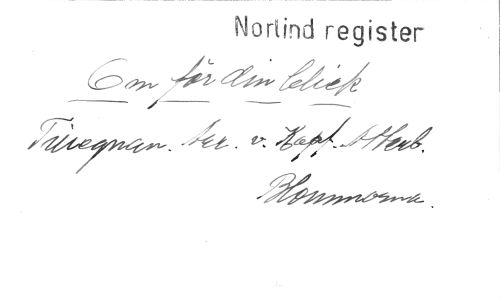 Norlind register
Om för din blick
Tillegnan. Ser. v. Kapf. Atterb.
Blommorna.